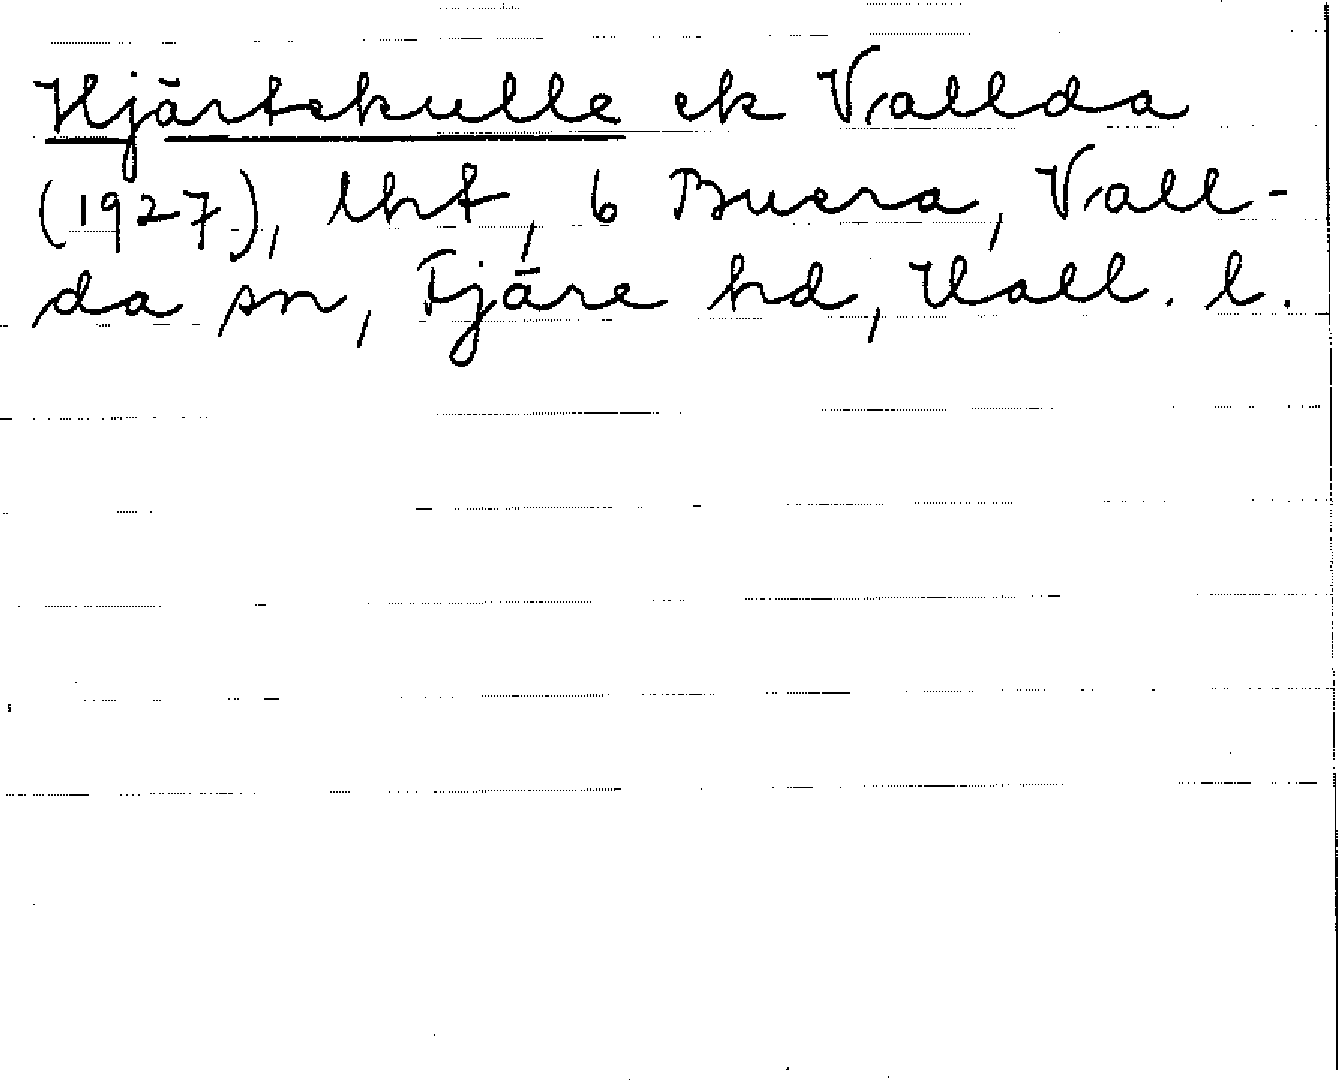 Hjärtekulle ek Vallda
(1927), lht, b Buera, Vall-
da sn, Fjäre hd, Hall. l.